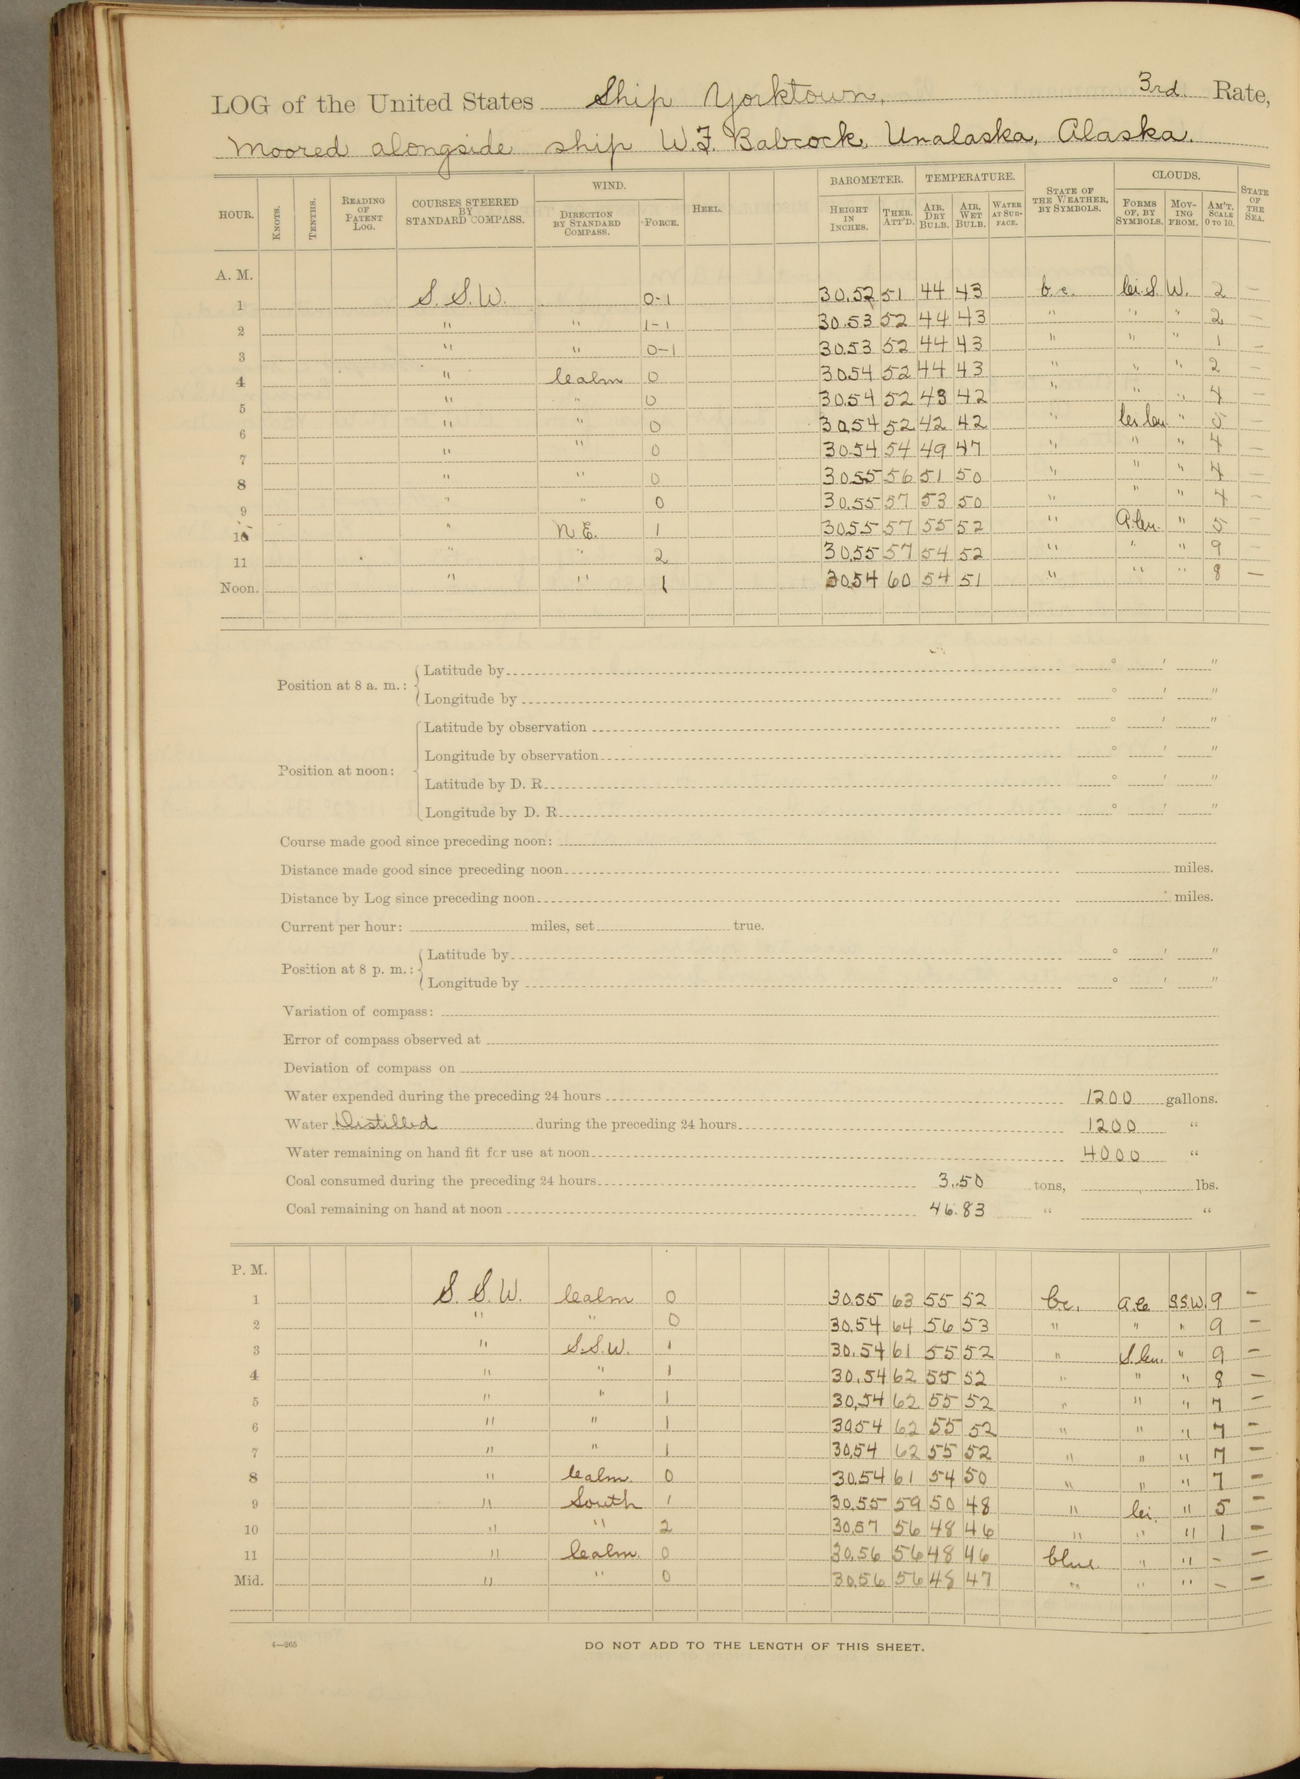 LOG of the United States Ship Yorktown, 3rd Rate,
Moored alongside ship W.F. Babcock, Unalaska, Alaska.
HOUR. KNOTS. TENTHS. READING OF PATENT LOG. COURSES STEERED BY STANDARD COMPASS. WIND. DIRECTION BY STANDARD COMPASS. FORCE. HEEL. BAROMETER. HEIGHT IN INCHES. THER. ATT'D. TEMPERATURE. AIR, DRY BULB. AIR, WET BULB. WATER AT SUR-FACE. STATE OF THE WEATHER, BY SYMBOLS. CLOUDS. FORMS OF, BY SYMBOLS. MOV-ING FROM. AM'T, SCALE 0 TO 10. STATE OF THE SEA.
A. M.
1 S. S. W. 0-1 30.52 51 44 43 b.c. Ci.S. W. 2 —
2 " " 1-1 30.53 52 44 43 " " " 2 —
3 " " 0-1 30.53 52 44 43 " " " 1 —
4 " Calm 0 30.54 52 44 43 " " " 2 —
5 " " 0 30.54 52 43 42 " " " 4 —
6 " " 0 30.54 52 42 42 " Ci Cu. " 5 —
7 " " 0 30.54 54 49 47 " " " 4 —
8 " " 0 30.55 56 51 50 " " " 4 —
9 " " 0 30.55 57 53 50 " " " 4 —
10 " N E. 1 30.55 57 55 52 " A.Cu. " 5 —
11 " " 2 30.55 57 54 52 " " " 9 —
Noon. " " 1 30.54 60 54 51 " " " 8 —
Position at 8 a. m.: Latitude by ° ′ ″
Longitude by ° ′ ″
Position at noon: Latitude by observation ° ′ ″
Longitude by observation ° ′ ″
Latitude by D. R. ° ′ ″
Longitude by D. R. ° ′ ″
Course made good since preceding noon:
Distance made good since preceding noon miles.
Distance by Log since preceding noon miles.
Current per hour: miles, set true.
Position at 8 p. m.: Latitude by ° ′ ″
Longitude by ° ′ ″
Variation of compass:
Error of compass observed at
Deviation of compass on
Water expended during the preceding 24 hours 1200 gallons.
Water Distilled during the preceding 24 hours 1200 "
Water remaining on hand fit for use at noon 4000 "
Coal consumed during the preceding 24 hours 3.50 tons, lbs.
Coal remaining on hand at noon 46.83 " "
P. M.
1 S. S. W. Calm 0 30.55 63 55 52 bc. A.C. S.S.W. 9 —
2 " " 0 30.54 64 56 53 " " " 9 —
3 " S.S.W. 1 30.54 61 55 52 " S.Cu. " 9 —
4 " " 1 30.54 62 55 52 " " " 8 —
5 " " 1 30.54 62 55 52 " " " 7 —
6 " " 1 30.54 62 55 52 " " " 7 —
7 " " 1 30.54 62 55 52 " " " 7 —
8 " Calm. 0 30.54 61 54 50 " " " 7 —
9 " South 1 30.55 59 50 48 " Ci. " 5 —
10 " " 2 30.57 56 48 46 " " " 1 —
11 " Calm. 0 30.56 56 48 46 blue " " — —
Mid. " " 0 30.56 56 48 47 " " " — —
4—265
DO NOT ADD TO THE LENGTH OF THIS SHEET.